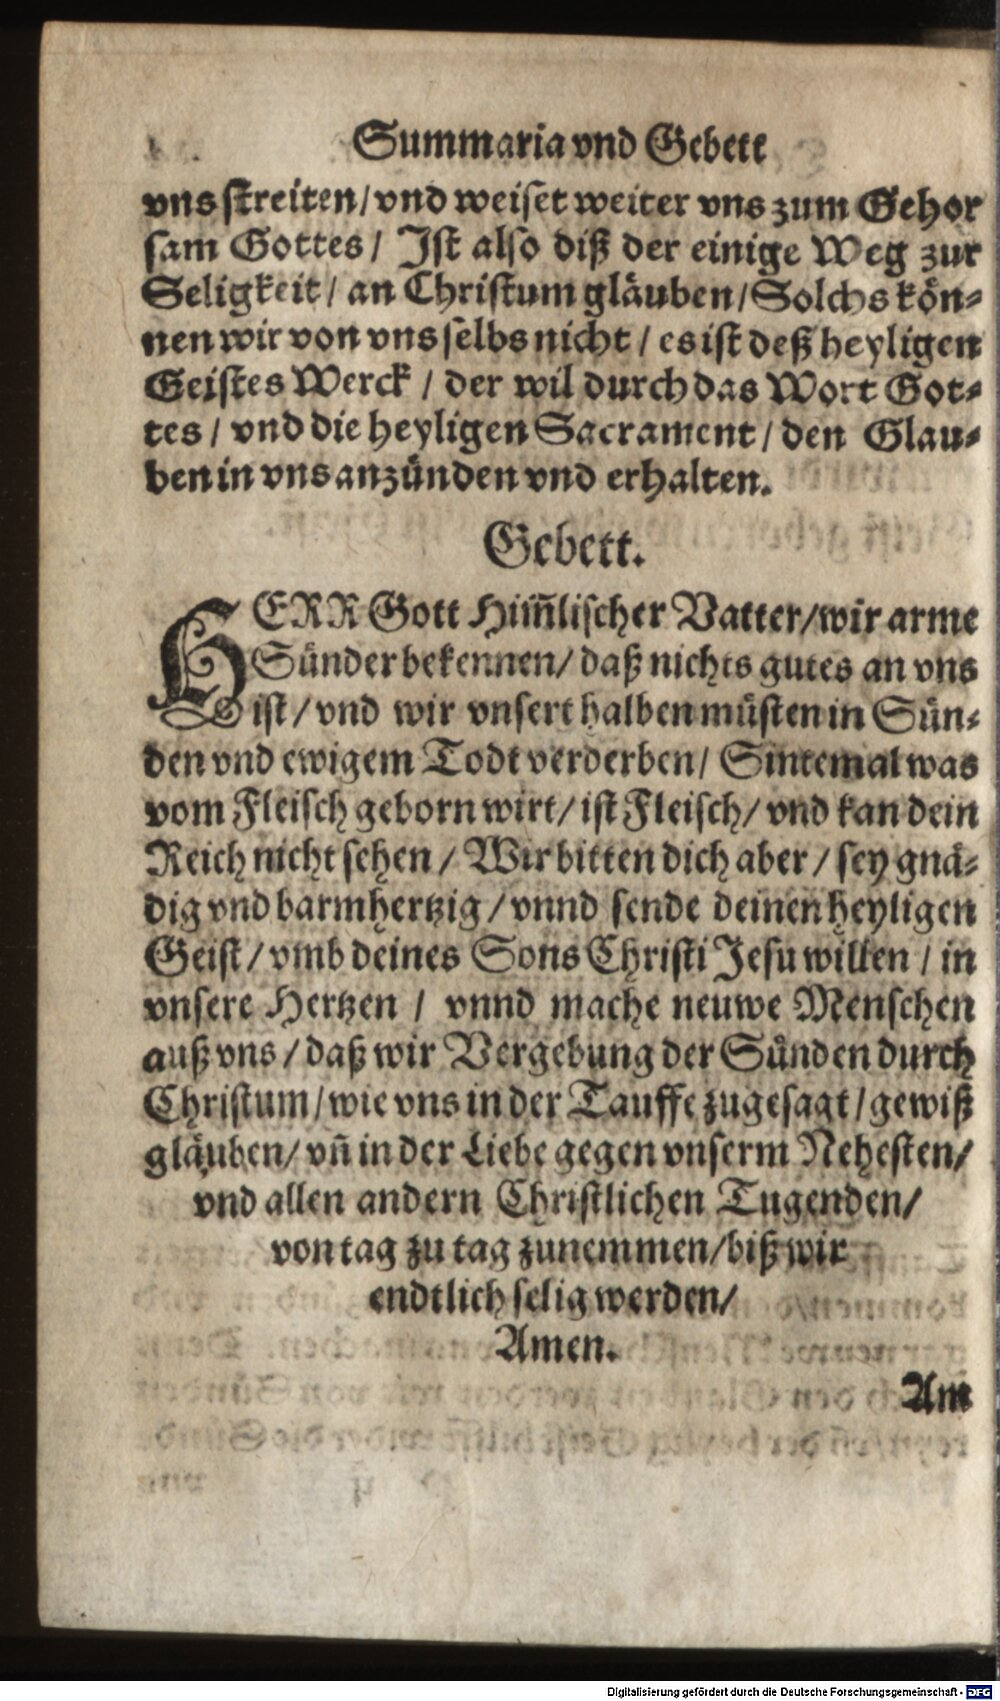 Summaria vnd Gebett
vns streiten/ vnd weiset weiter vns zum Gehor
sam Gottes/ Ist also diß der einige Weg zur
Seligkeit/ an Christum gläuben/ Solchs kön-
nen wir von vns selbs nicht/ es ist deß heyligen
Geistes Werck/ der wil durch das Wort Got-
tes/ vnd die heyligen Sacrament/ den Glau-
ben in vns anzünden vnd erhalten.
Gebett.
HERR Gott Him̃lischer Vatter/ wir arme
Sünder bekennen/ daß nichts gutes an vns
ist/ vnd wir vnsert halben müsten in Sün-
den vnd ewigem Todt verderben/ Sintemal was
vom Fleisch geborn wirt/ ist Fleisch/ vnd kan dein
Reich nicht sehen/ Wir bitten dich aber/ sey gnä-
dig vnd barmhertzig/ vnnd sende deinen heyligen
Geist/ vmb deines Sons Christi Jesu willen/ in
vnsere Hertzen/ vnnd mache neuwe Menschen
auß vns/ daß wir Vergebung der Sünden durch
Christum/ wie vns in der Tauffe zugesagt/ gewiß
gläuben/ vñ in der Liebe gegen vnserm Nehesten/
vnd allen andern Christlichen Tugenden/
von tag zu tag zunemmen/ biß wir
endtlich selig werden/
Amen.
Am
Digitalisierung gefördert durch die Deutsche Forschungsgemeinschaft - DFG